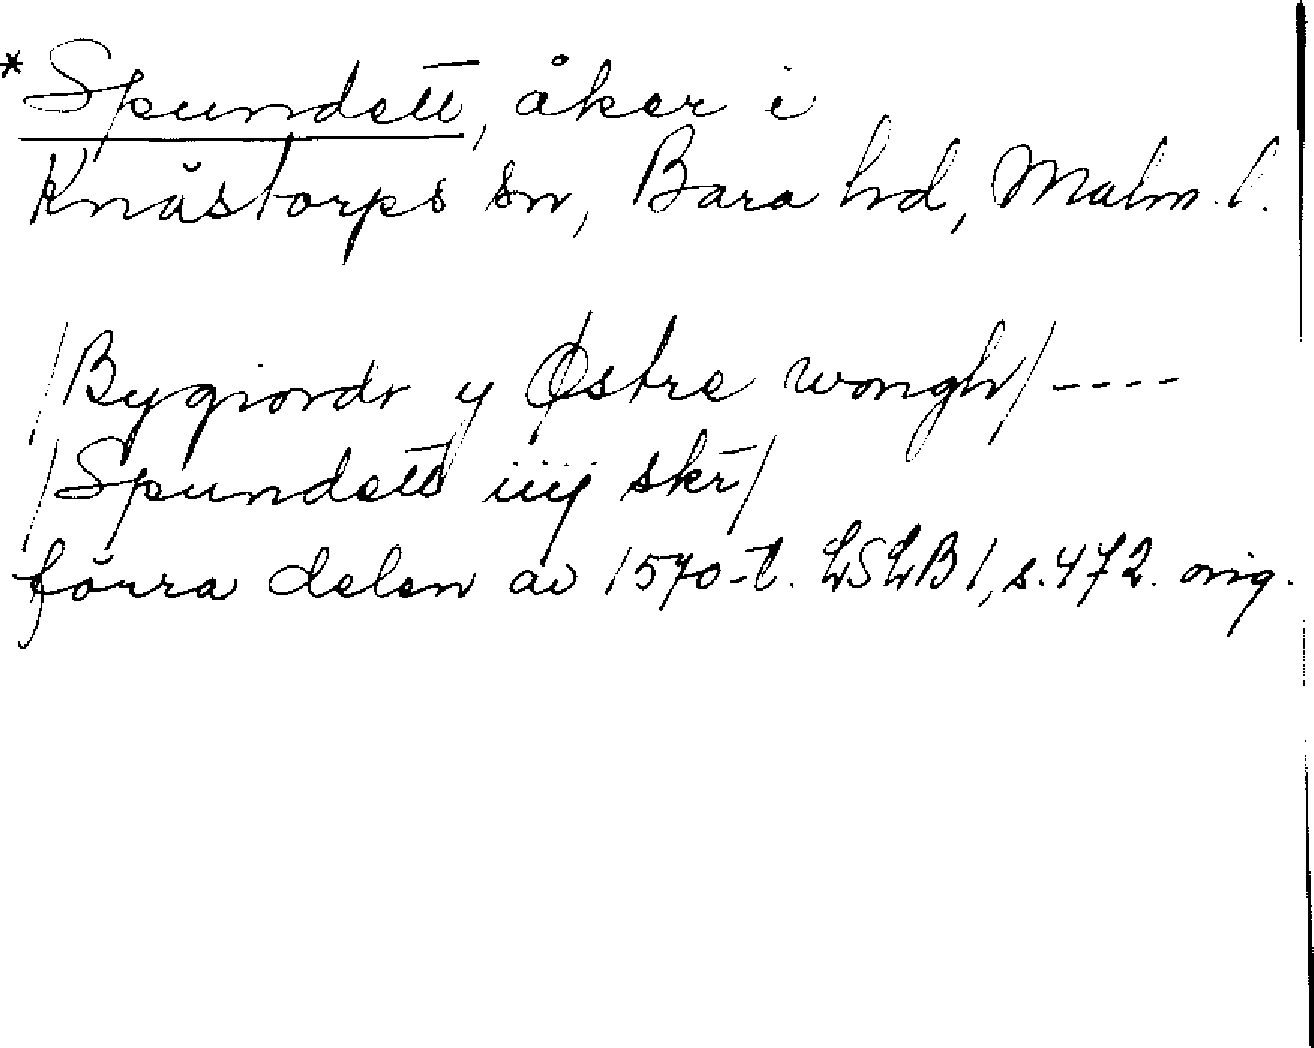 *Spundett, åker i
Knästorps sn, Bara hd, Malm. l.
/Bygiordr y Østre wongh/ ----
/Spundett iiij skr̄/
förra delen av 1570-t. LSLB 1, s. 472. orig.